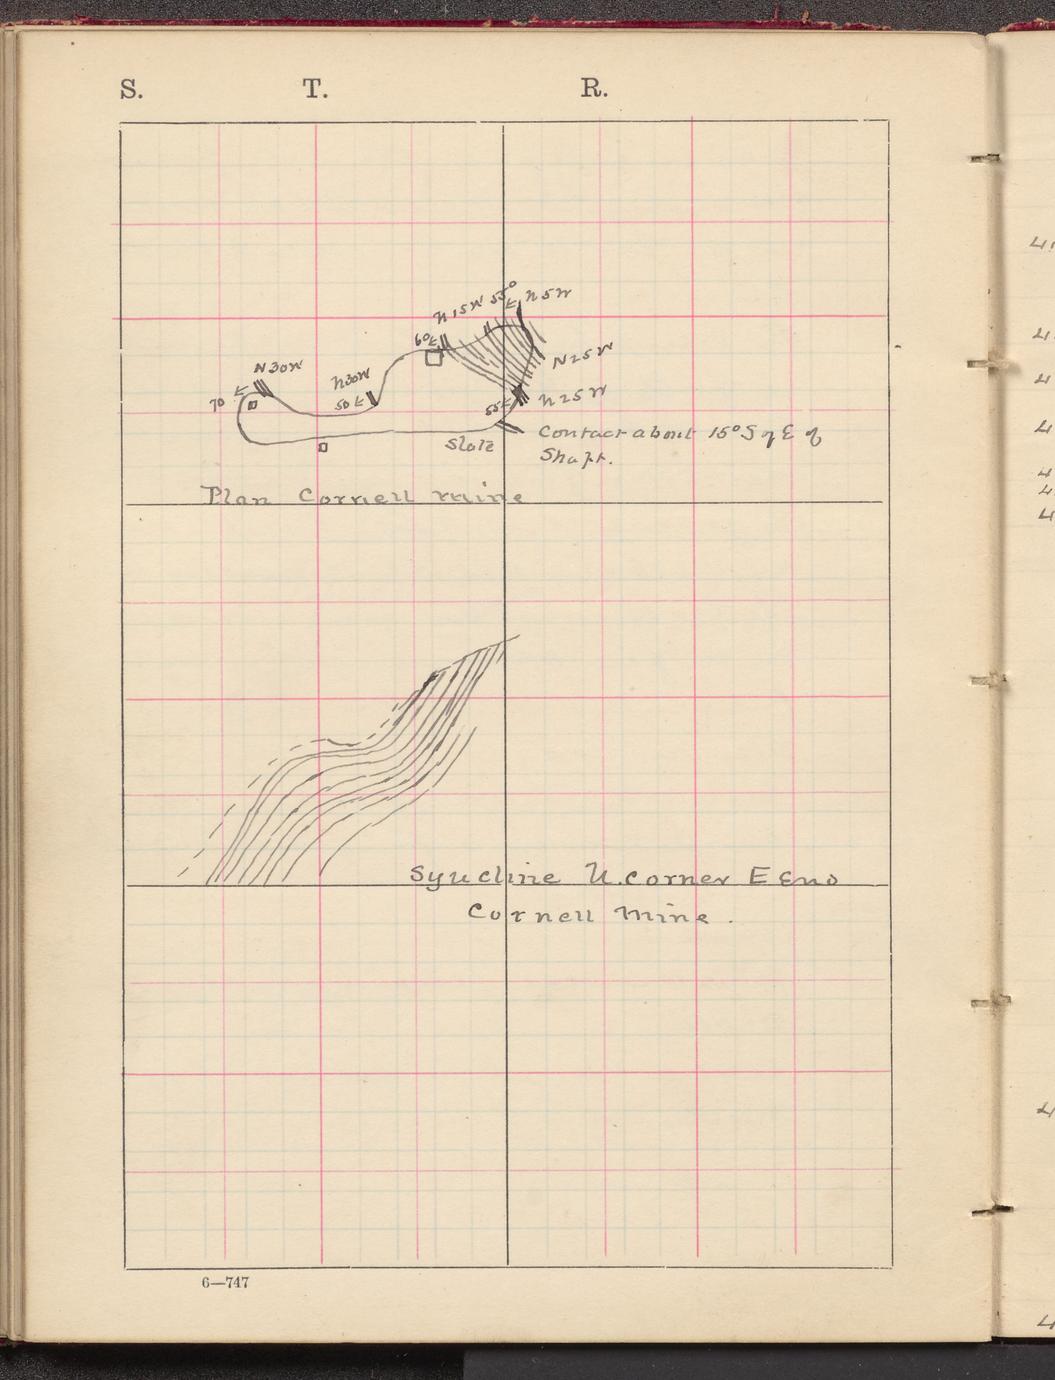 S. T. R.
N 15 W 55° N 5 W
60
N 25 W
N 30 W
N 30 W
70
50
55
N 25 W
Slate
Contact about 15° S of E of
Shaft.
Plan Cornell mine
Syncline N. corner E End
Cornell Mine.
6—747